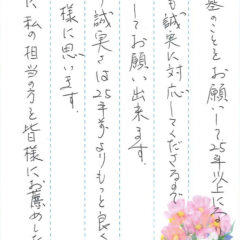 墓のことをお願いして25年以上になる
も誠実に対応してくださるので
してお願い出来ます。
り誠実さは25年前よりもっと良く
様に思います。
に、私の担当の方を皆様にお薦めした